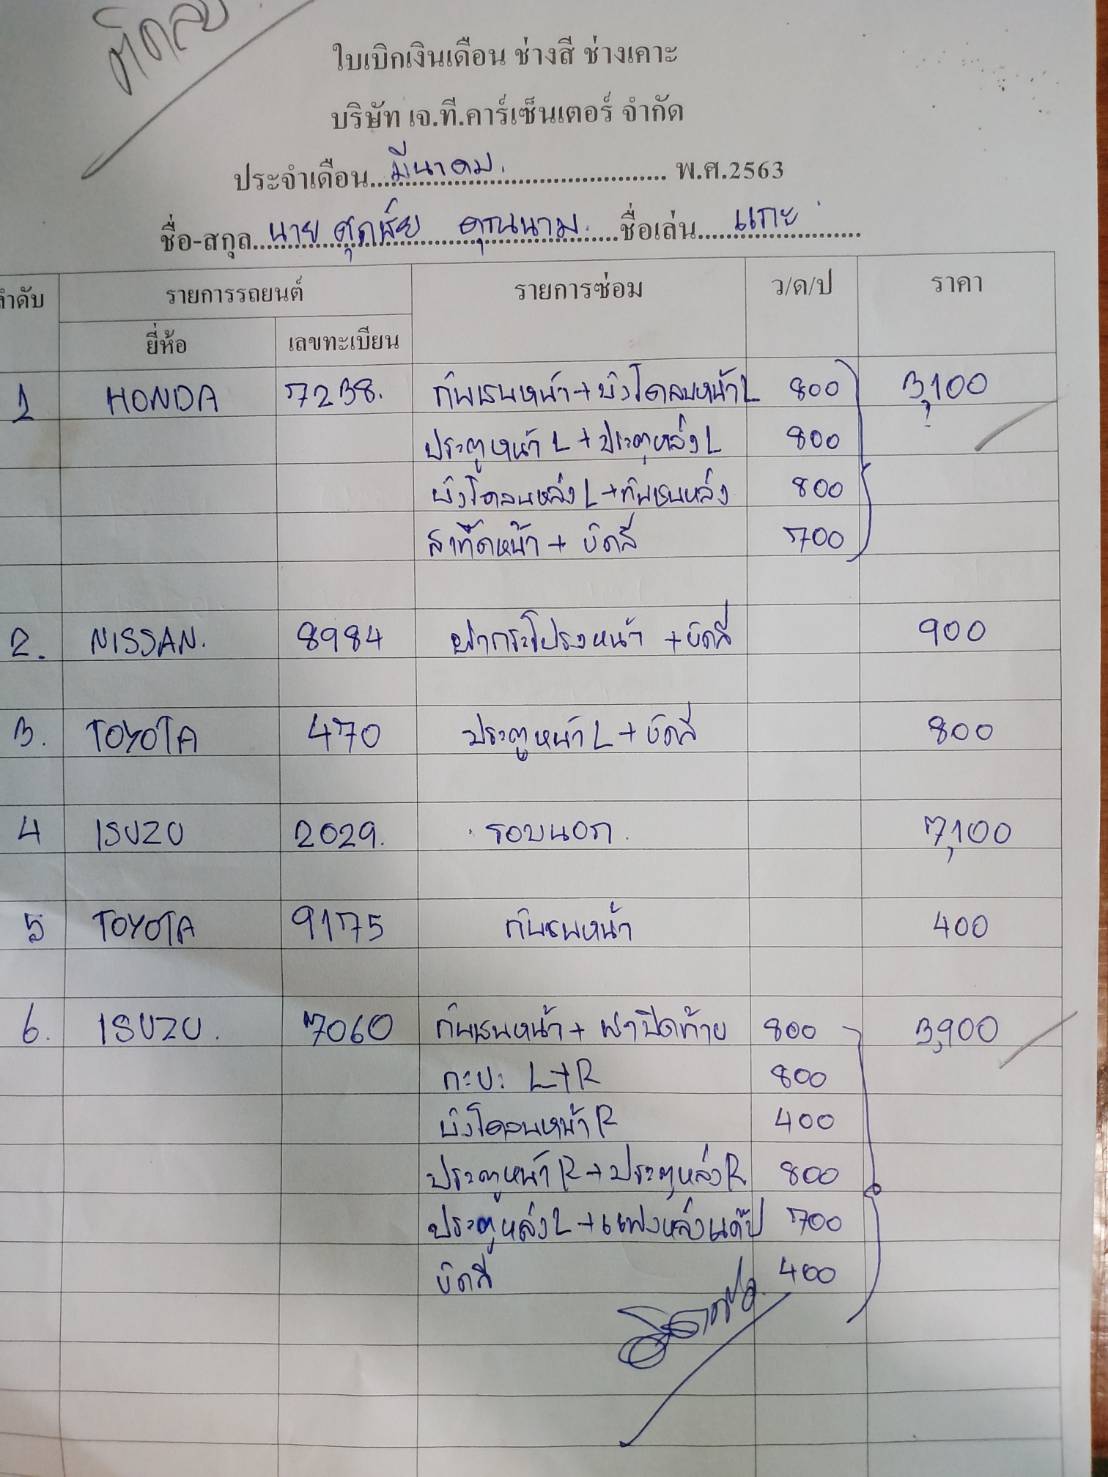 ใบเบิกเงินเดือน ช่างสี ช่างเคาะ
บริษัท เจ.ที.คาร์เซ็นเตอร์ จำกัด
ประจำเดือน...มีนาคม.......... พ.ศ.2563
ชื่อ-สกุล...นาย ศุภชัย คุณนาม...ชื่อเล่น...แกะ...
ลำดับ รายการรถยนต์ รายการซ่อม ว/ด/ป ราคา
ยี่ห้อ เลขทะเบียน
1 HONDA 7238. กันชนหน้า+บังโคลนหน้า L 800 3,100
ประตูหน้า L + ประตูหลัง L 800
บังโคลนหลัง L+กันชนหลัง 800
ลาทึดหน้า + ขัดสี 700
2. NISSAN. 8984 ฝากระโปรงหน้า +ขัดสี 900
3. TOYOTA 470 ประตูหน้า L + ขัดสี 800
4 ISUZU 2029. รอบนอก. 7,100
5 TOYOTA 9175 กันชนหน้า 400
6. ISUZU. 7060 กันชนหน้า + ฝาปิดท้าย 800 3,900
กะบะ L+R 800
บังโคลนหน้า R 400
ประตูหน้า R + ประตูหลัง R 800
ประตูหลัง L + แผงหลังแค๊ป 700
ขัดสี 400